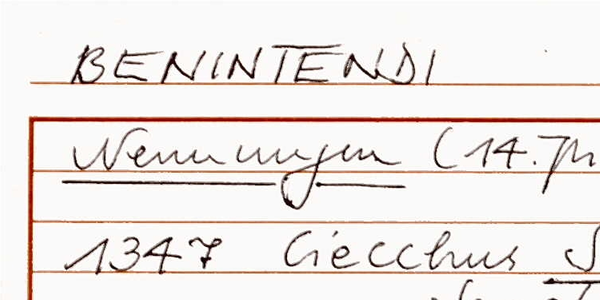 BENINTENDI
Nennungen (14. Jh
1347 Ciecchus S